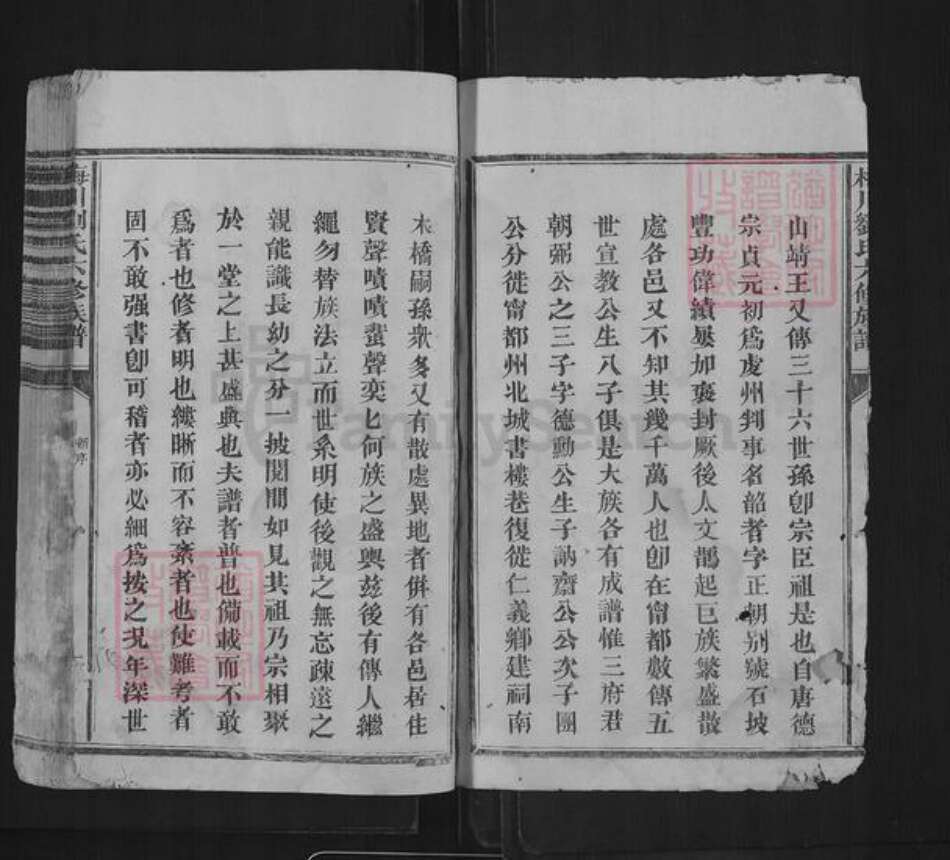 梅川劉氏六修族譜
山靖王又傳三十六世孫卽宗臣祖是也自唐德
宗貞元初爲虔州判事名韶者字正朝别號石坡
豐功偉績屡加襃封厥後人文鵲起巨族繁盛散
處各邑又不知其幾千萬人也卽在甯都數傳五
世宣教公生八子俱是大族各有成譜惟三府君
朝弼公之三子字德勳公生子訥齋公公次子團
公分徙甯都州北城書樓巷復徙仁義鄉建祠南
木橋嗣孫衆多又有散處異地者倂有各邑居住
賢聲嘖嘖蜚聲奕匕何族之盛興兹後有傳人繼
繩勿替族法立而世系明使後觀之無忘疎遠之
親能識長幼之分一披閱閒如見其祖乃宗相聚
於一堂之上甚盛典也夫譜者普也備載而不敢
爲者也修者明也縷晰而不容紊者也使難考者
固不敢强書卽可稽者亦必細爲按之況年深世
梅川劉氏六修族譜
新序
FamilySearch